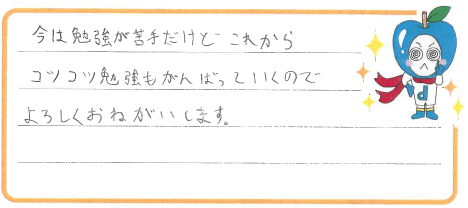 今は勉強が苦手だけど これから
コツコツ勉強もがんばっていくので
よろしくおねがいします。
d